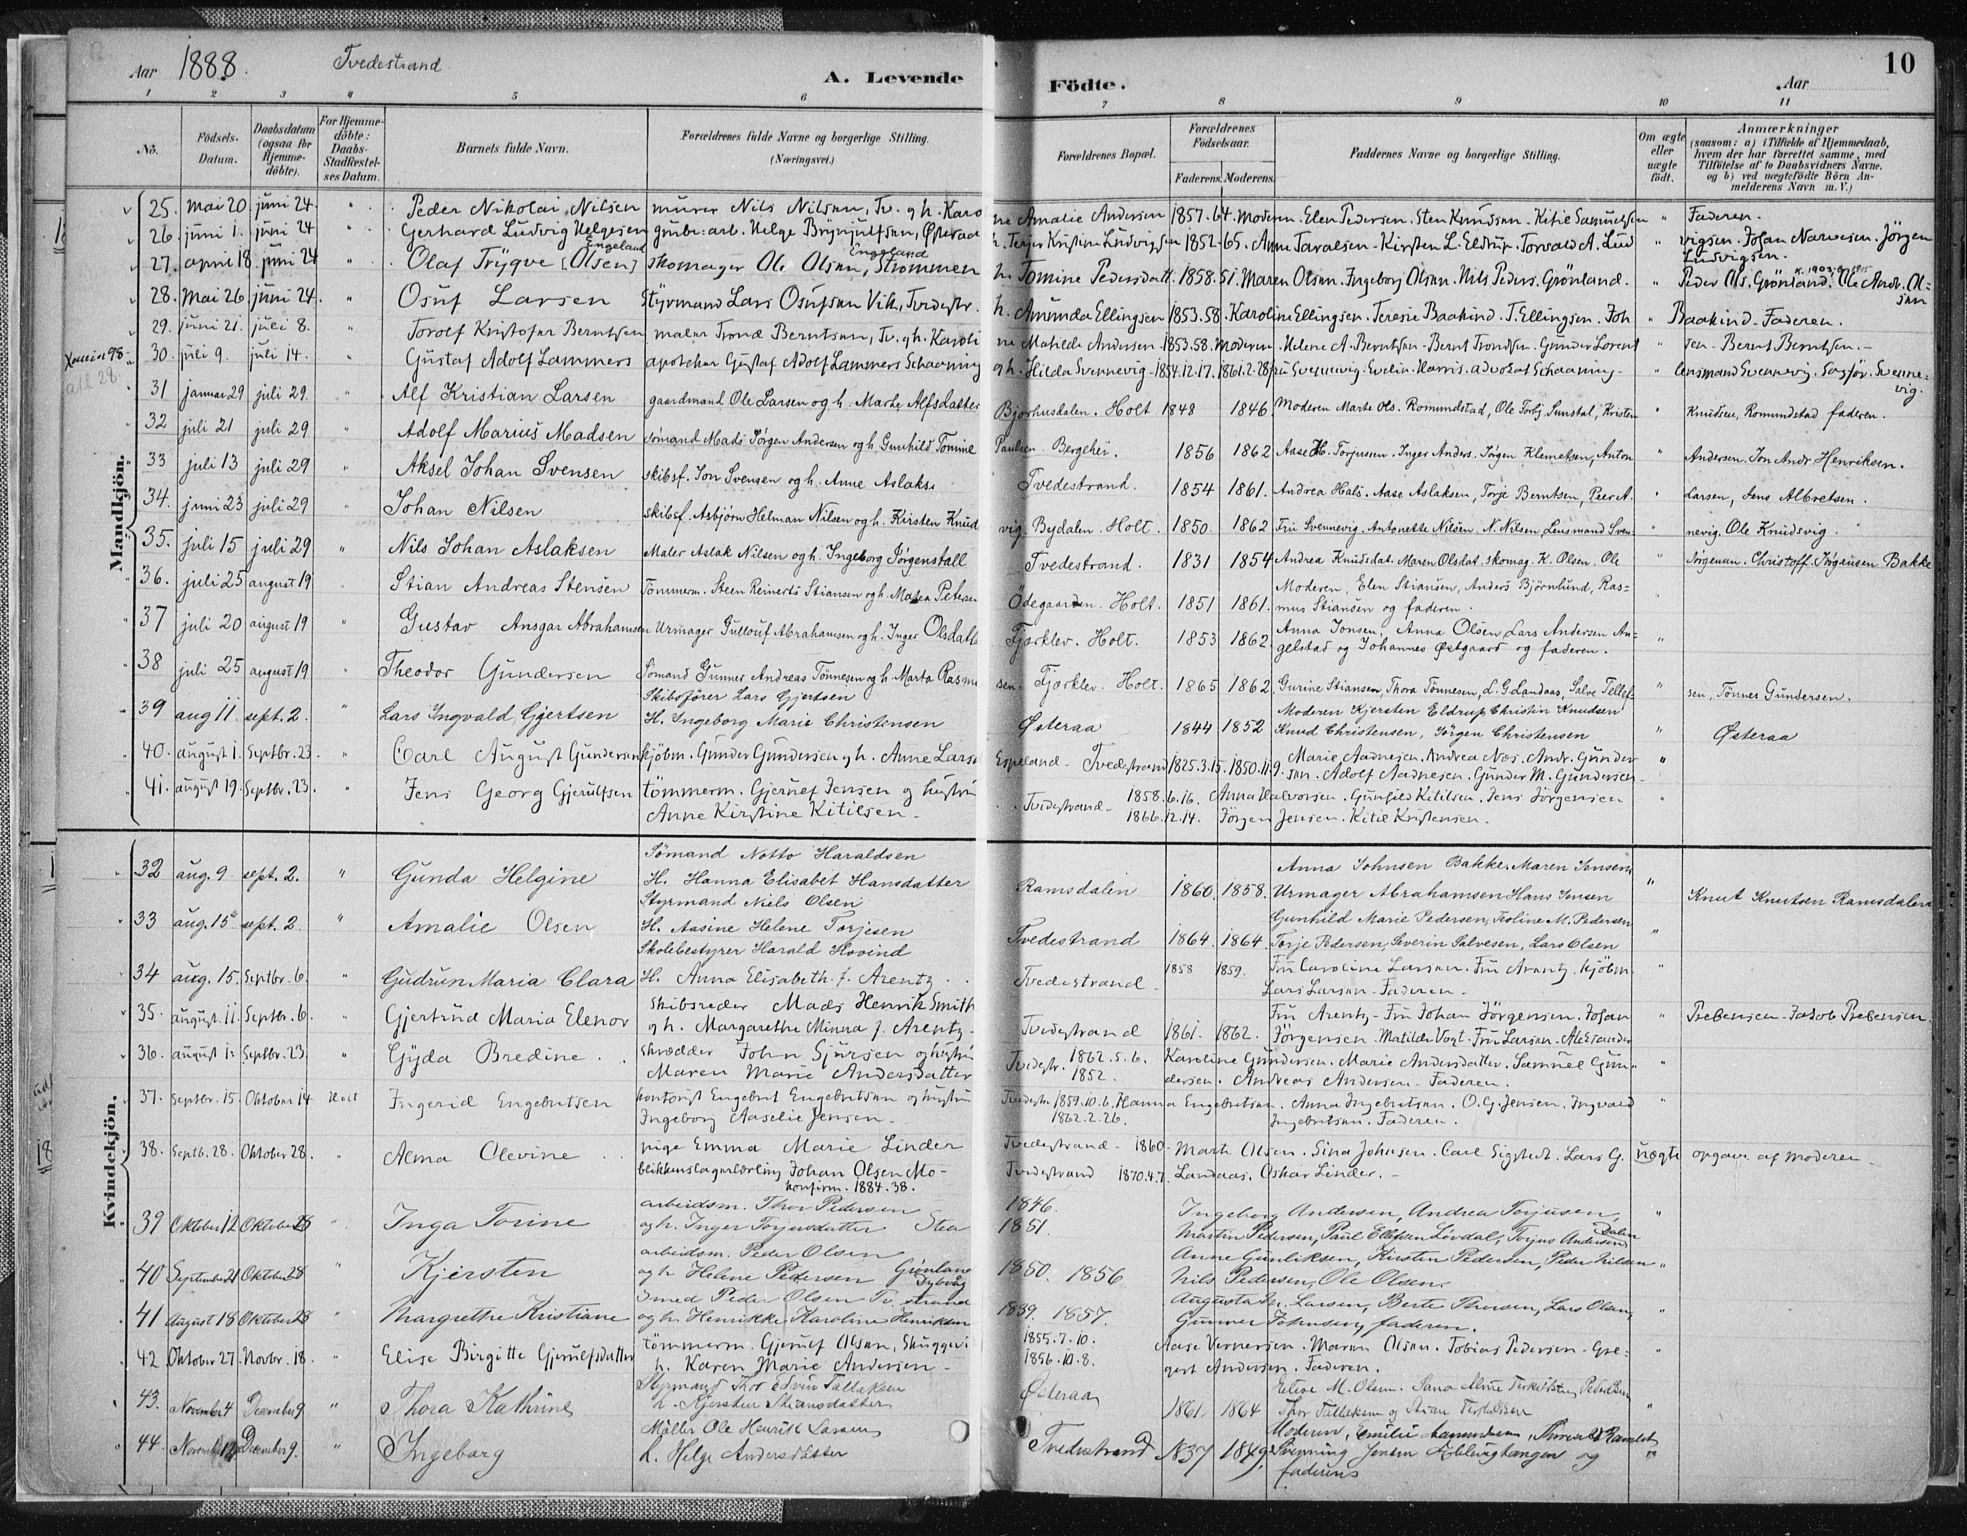 Aar 1888. Tvedestrand A. Levende
Födte. Aar 10
1 2 3 4 5 6 7 8 9 10 11
No. Födsels-Datum. Daabsdatum (ogsaa for Hjemmedöbte). For Hjemmedöbte: Daabs-Stadfæstelses Datum. Barnets fulde Navn. Forældrenes fulde Navne og borgerlige Stilling. (Næringsvei.)
Forældrenes Bopæl. Forældrenes Födselsaar. Faderens. Moderens. Faddernes Navne og borgerlige Stilling. Om ægte eller uægte födt. Anmærkninger (saasom: a) i Tilfælde af Hjemmedaab, hvem der har forrettet samme, med Tilföielse af to Daabsvidners Navne. og b) ved uægtefödte Börn Anmelderens Navn m. V.)
Mandkjön.
25. mai 20. juni 24. " Peder Nikolai Nilsen murer Nils Nilsen, Tv. og h. Karo
ne Amalie Andersen 1857. 64. Moderen. Elen Pedersen. Sten Knudsen. Kitie Samuelsen " Faderen.
26. juni 1. juni 24 " Gerhard Ludvig Helgesen grubearb. Helge Brynjulfsen, Østeraa
h. Terjer Kristine Ludvigsen 1852. 65. Anne Taralsen. Kirsten L. Eldrup. Torvald A. Lud " vigsen. Johan Narvesen. Jörgen Ludvigsen.
27. april 18. juni 24 " Olaf Trygve [Olsen] Engeland skomager Ole Olsen, Engeland Strømmen
h. Tomine Pedersdatt. 1858. 51. Maren Olsen. Ingeborg Olsen. Nils Peders. Grönland. " Peder Ols. Grönland. Ole Andr. Olsen
28. Mai 26. juni 24. " Osuf Larsen Styrmand Lars Osufsen Vik, Tvedestr.
h. Amunda Ellingsen 1853. 58. Karoline Ellingsen. Teresie Baakind. T. Ellingsen. Joh " Baakind. Faderen.
29. juni 21. juli 8. " Torolf Kristofer Berntsen maler Trond Berntsen, Tv. og h. Karoli
ne Matilde Andersen. 1853. 58. Moderen. Helene A. Berntsen. Bernt Trondsen. Gunder Lorent " sen. Bernt Berntsen.
30. juli 9. juli 14. " Gustaf Adolf Lammers apotheker Gustaf Adolf Lammers Schaanning
og h. Hilda Svennevig. 1854.12.17. 1861.2.28 fru Svennevig. Evelin Harris. advokat Schaanning " lensmand Svennevig. Sagför. Svennevig.
31 januar 29 juli 29. " Alf Kristian Larsen gaardmand Ole Larsen og h. Marte Alfsdatter
Bjorhusdalen. Holt 1848 1846. Moderen Marte Ols. Romundstad, Ole Torbj. Sunstal, Kristen " Knudsen, Romundstad faderen.
32 juli 21 juli 29 " Adolf Marius Madsen sömand Mads Jørgen Andersen og h. Gunhild Tomine
Paulsen. Bergehei. 1856 1862 Aase H. Torjussen. Inger Anders. Jörgen Klemetsen, Anton " Andersen. Jon Andr Henriksen.
33 juli 13 juli 29 " Aksel Johan Svensen skibsf. Jon Svensen og h. Anne Aslaks.
Tvedestrand. 1854 1861. Andrea Hals. Aase Aslaksen, Torje Berntsen, Peer A. " Larsen, Jens Albretsen.
34. juni 23 juli 29 " Johan Nilsen skibsf. Asbjörn Helman Nilsen og h. Kirsten Knud
vig. Bydalen. Holt. 1850. 1862 Fru Svennevig. Antonette Nilsen. N. Nilsen, Lensmand Sven " nevig. Ole Knudsvig.
35. juli 15 juli 29 " Nils Johan Aslaksen Maler Aslak Nilsen og h. Ingeborg Jörgenstall
Tvedestrand. 1831 1854 Andrea Knudsdat. Maren Olsdat. skomag. K. Olsen. Ole " Jørgensen. Christoff. Jørgensen Bakke
36. juli 25 august 19 " Stian Andreas Stensen Tömmerm. Steen Reinerts Stiansen og h. Maren Peters
Ødegaarden. Holt. 1851 1861. Moderen, Elen Stiansen, Anders Björnlund, Rasmus Stiansen og faderen. "
37 juli 20 august 19 " Gustav Ansgar Abrahamsen Urmager Gullouf Abrahamsen og h. Inger Olsdatter
Fjærklev. Holt. 1853 1862. Anna Jonsen. Anna Olsen, Lars Andersen Angelstad og Johannes Østgaard og faderen. "
38 juli 25 august 19 " Theodor Gundersen Sömand Gunner Andreas Tönnesen og h. Marta Rasm
sen. Fjærklev. Holt. 1865 1862. Gurine Stiansen, Thora Tönnesen, L. G. Landaas, Salve Tellef " sen, Tönnes Gundersen.
39 aug 11. sept. 2. " Lars Ingvald Gjertsen Skibsfører Lars Gjertsen H. Ingeborg Marie Christensen
Østeraa 1844 1852 Moderen Kjersten Eldrup Christin Knudsen Knud Christensen, Jörgen Christensen " Østeraa
40. august 1. Septbr. 23. " Carl August Gundersen kjöbm. Gunder Gundersen og h. Anne Larsd
Espeland. Tvedestrand 1825.3.15. 1850.11.9. Marie Aadnesen. Andrea Næs. Andr. Gundersen. Adolf Aadnesen. Gunder M. Gundersen "
41. august 19. Septbr. 23. " Jens Georg Gjerulfsen tömmerm. Gjeruef Jensen og hustru Anne Kirstine Kitilsen.
Tvedestrand. 1858.6.16. 1866.12.14. Anna Halvorsen. Gunhild Kitilsen. Jens Jörgensen Jörgen Jensen. Kitil Kristensen. "
Kvindekjön.
32 aug. 9 sept. 2. " Gunda Helgine Sømand Notto Haraldsen H. Hanna Elisabet Hansdatter
Ramsdalen 1860. 1858. Anna Johnsen Bakke. Maren Jensen, Urmager Abrahamsen Hans Jensen " Knut Knutsen Ramsdalen
33 aug. 15 sept. 2 " Amalie Olsen Styrmand Niels Olsen H. Aasine Helene Torjesen
Tvedestrand 1864. 1864. Gunhild Marie Pedersen, Teoline M. Pedersen Torje Pedersen, Severin Salvesen, Lars Olsen "
34 aug. 15. Septbr. 6. " Gudrun Maria Clara Skolebestyrer Harald Hovind H. Anna Elisabeth f. Arentz.
Tvedestrand. 1858 1859. Fru Caroline Larsen. Fru Arentz. Kjöbm. Lars Larsen. Faderen. "
35. august. 11. Septbr. 6. " Gjertrud Maria Elenor Skibsreder Mads Henrik Smith og h. Margarethe Minna f. Arentz
Tvedestrand 1861. 1862. Fru Arentz. Fru Johan Jörgensen. Johan Jörgensen. Matilde Vogt. Fru Larsen. Alexander Prebensen. Jakob Prebensen.
36. august 1. Septbr. 23. " Gyda Bredine. skrædder John Sjursen og hustru Maren Marie Andersdatter
Tvedestr. 1862.5.6. 1852. Karoline Gundersen. Marie Andersdatter. Samuel Gundersen. Andreas Andersen. Faderen. "
37. Septbr. 15. Oktober 14 Holt Ingerid Engebretsen kontorist Engebret Engebretsen og hustru Ingeborg Aaselie Jensen.
Tvedestr. 1859.10.6. 1862.2.26. Hanna Engebretsen. Anna Ingebretsen. O. G. Jensen. Ingvald Ingebretsen. Faderen. "
38. Septb. 28. Oktober 28. " Alma Olevine pige Emma Marie Linder blikkenslagerlærling Johan Olsen Mo- konfirm. 1884. 38.
Tvedestrand. 1860. Tvedestrand 1870.4.7. Marte Olsen. Sina Johnsen. Carl Sigstedt. Lars G. Landaas. Oskar Linder. uægte opgave af moderen
39 Oktober 12 Oktober 28 " Inga Torine arbeidsm. Thor Pedersen og h. Inger Torjusdatter Stea
1846. 1851. Ingeborg Andersen, Andrea Torjusen, Martin Pedersen, Paul Ellefsen Lövdal, Torjus Andersen Dalen "
40 September 21 Oktober 28 " Kjersten arbeidsm. Peder Olsen og h Helene Pedersen Grønland Dybvåg
1850. 1856 Anne Gunliksen, Kirsten Pedersen, Peder Nilsen Nils Pedersen, Ole Olsen. "
41 August 18 Oktober 28 " Margrethe Kristiane Smed Peder Olsen Tv.strand og h. Henrikke Karoline Henriksen
1889. 1857. Augusta M. Larsen, Berte Thorsen, Lars Olsen, Gunner Johnsen, faderen. "
42 Oktober 27. Novbr. 18. " Elise Birgitte Gjerulfsdatter tömmerm. Gjerulf Olsen, Skuggevi h. Karen Marie Andersen
1855.7.10. 1856.10.8. Aase Vernersen. Maren Olsen. Tobias Pedersen. Gregert Andersen. Faderen. "
43. November 4 December 9 " Thora Kathrine Styrmand Thor Edvin Tallaksen h. Kjersten Stiansdatter
Østeraa 1861. 1864 Elise M. Olsen. Thor Tallaksen og "
44. December 9. " Ingeborg Møller Ole Henrik Larsen h. Helge Andersdatter
Tvedestrand 1837 1849. Moderen, Emilie og faderen "